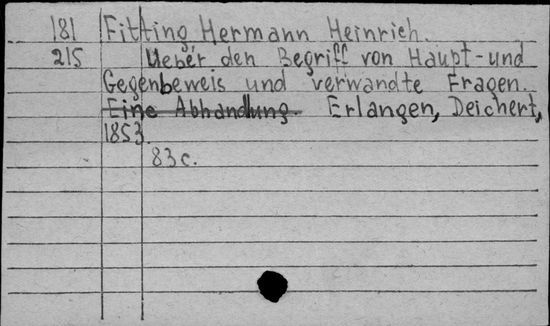 181 Fitting Hermann Heinrich.
215 Ueber den Begriff von Haupt-und
Gegenbeweis und verwandte Fragen.
Eine Abhandlung. Erlangen, Deichert,
1853.
83c.